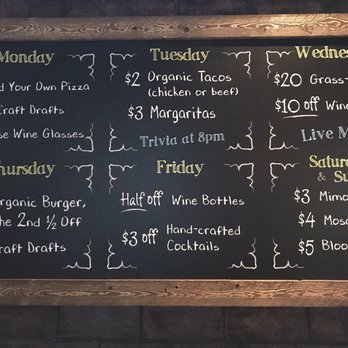 Monday
d Your Own Pizza
Craft Drafts
se Wine Glasses
Tuesday
$2 Organic Tacos
(chicken or beef)
$3 Margaritas
Trivia at 8pm
Wednes
$20 Grass-
$10 off Wine
Live M
hursday
rganic Burger,
he 2nd ½ Off
raft Drafts
Friday
Half off Wine Bottles
$3 off Hand-crafted
Cocktails
Satur
& Su
$3 Mimo
$4 Mosc
$5 Bloo